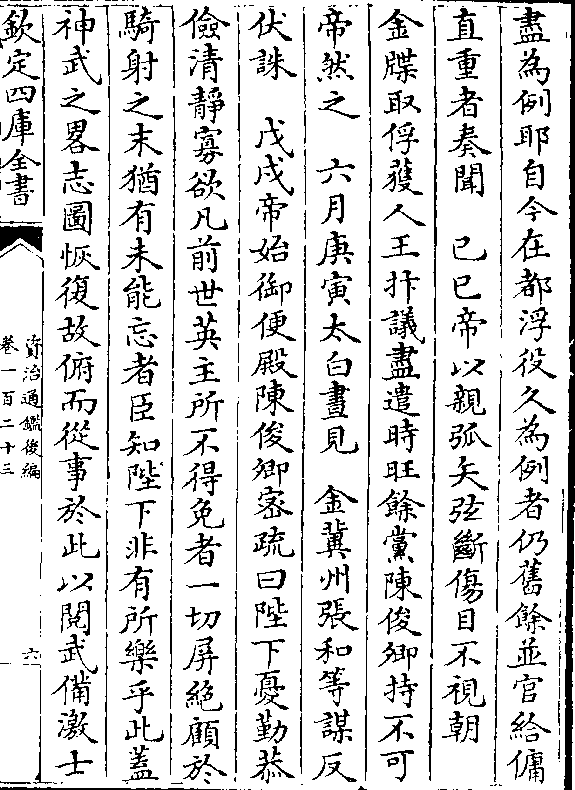 盡為例耶自今在都浮役久為例者仍舊餘並官給傭
直重者奏聞　己巳帝以親弧矢弦斷傷目不視朝
金牒取俘獲人王抃議盡遣時旺餘黨陳俊卿持不可
帝然之　六月庚寅太白晝見　金冀州張和等謀反
伏誅　戊戌帝始御便殿陳俊卿密疏曰陛下憂勤恭
儉清靜寡欲凡前世英主所不得免者一切屏絶顧於
騎射之末猶有未能忘者臣知陛下非有所樂乎此蓋
神武之畧志圖恢復故俯而從事於此以閱武備激士
欽定四庫全書
資治通鑑後編
卷一百二十三
六